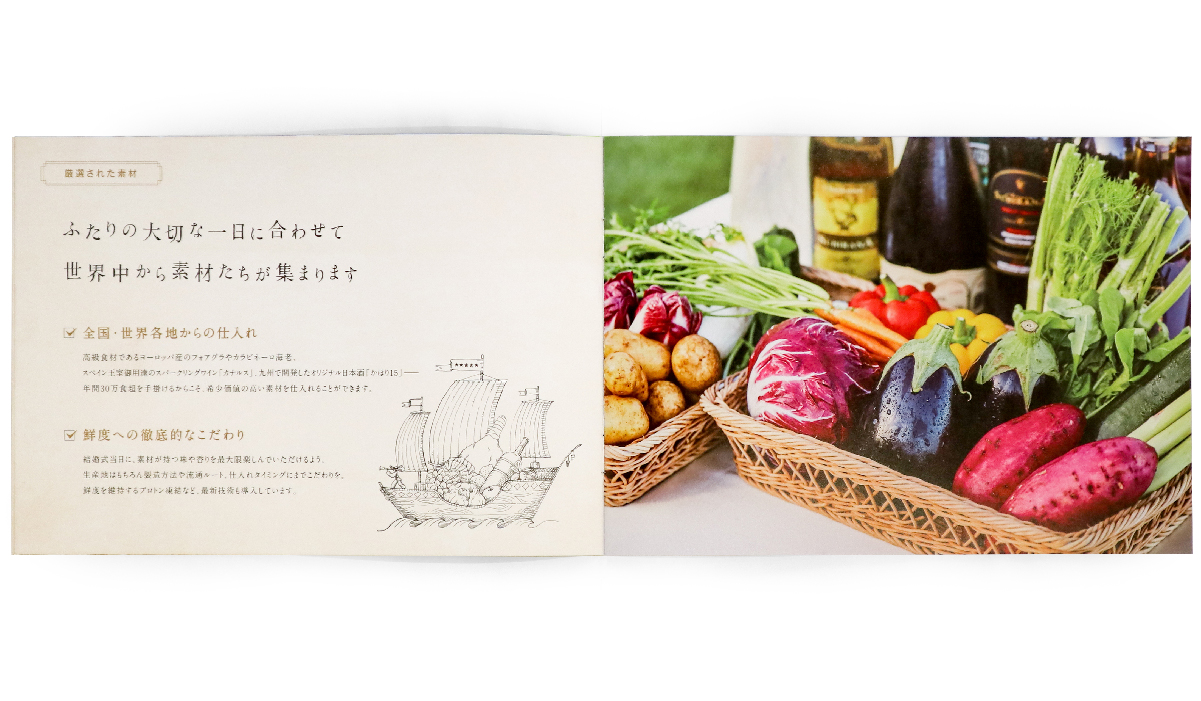 厳選された素材
ふたりの大切な一日に合わせて
世界中から素材たちが集まります
全国・世界各地からの仕入れ
高級食材であるヨーロッパ産のフォアグラやカラビネーロ海老、
スペイン王室御用達のスパークリングワイン「カナルス」、九州で開発したオリジナル日本酒「かほり15」――
年間30万食超を手掛けるからこそ、希少価値の高い素材を仕入れることができます。
鮮度への徹底的なこだわり
結婚式当日に、素材が持つ味や香りを最大限楽しんでいただけるよう、
生産地はもちろん製造方法や流通ルート、仕入れタイミングにまでこだわりを。
鮮度を維持するプロトン凍結など、最新技術も導入しています。